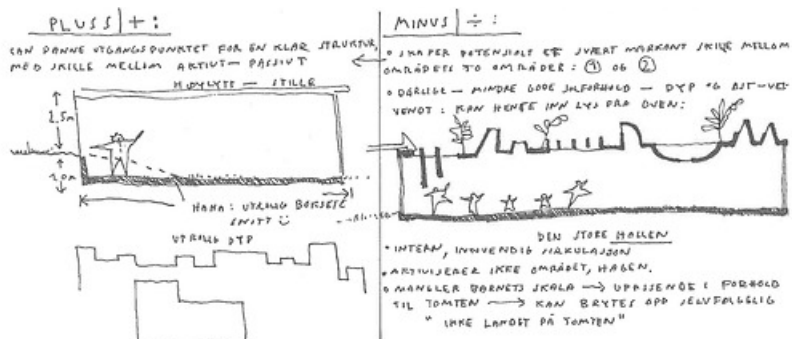 PLUSS | + :
KAN DANNE UTGANGSPUNKTET FOR EN KLAR STRUKTUR,
MED SKILLE MELLOM AKTIVT - PASSIVT
HØYLYTT - STILLE
2,5m
HAHA : UTROLIG
SNITT
UTROLIG DYP
MINUS | ÷ :
• SKAPER POTENSIELT ET SVÆRT MARKANT SKILLE MELLOM
OMRÅDETS TO OMRÅDER : 1 OG 2
• DÅRLIGE - MINDRE GODE SOLFORHOLD - DYP OG ØST-VEST
VENDT : KAN HENTE INN LYS FRA OVEN :
DEN STORE HALLEN
• INTERN, INNVENDIG SIRKULASJON
• AKTIVISERER IKKE OMRÅDET, HAGEN.
• MANGLER BARNETS SKALA → UPASSENDE I FORHOLD
TIL TOMTEN → KAN BRYTES OPP SELVFØLGELIG
" IKKE LANDET PÅ TOMTEN"